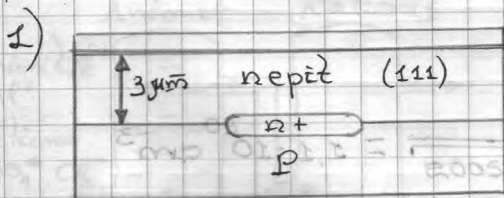 1)
3 μm n epit (111)
n+
P